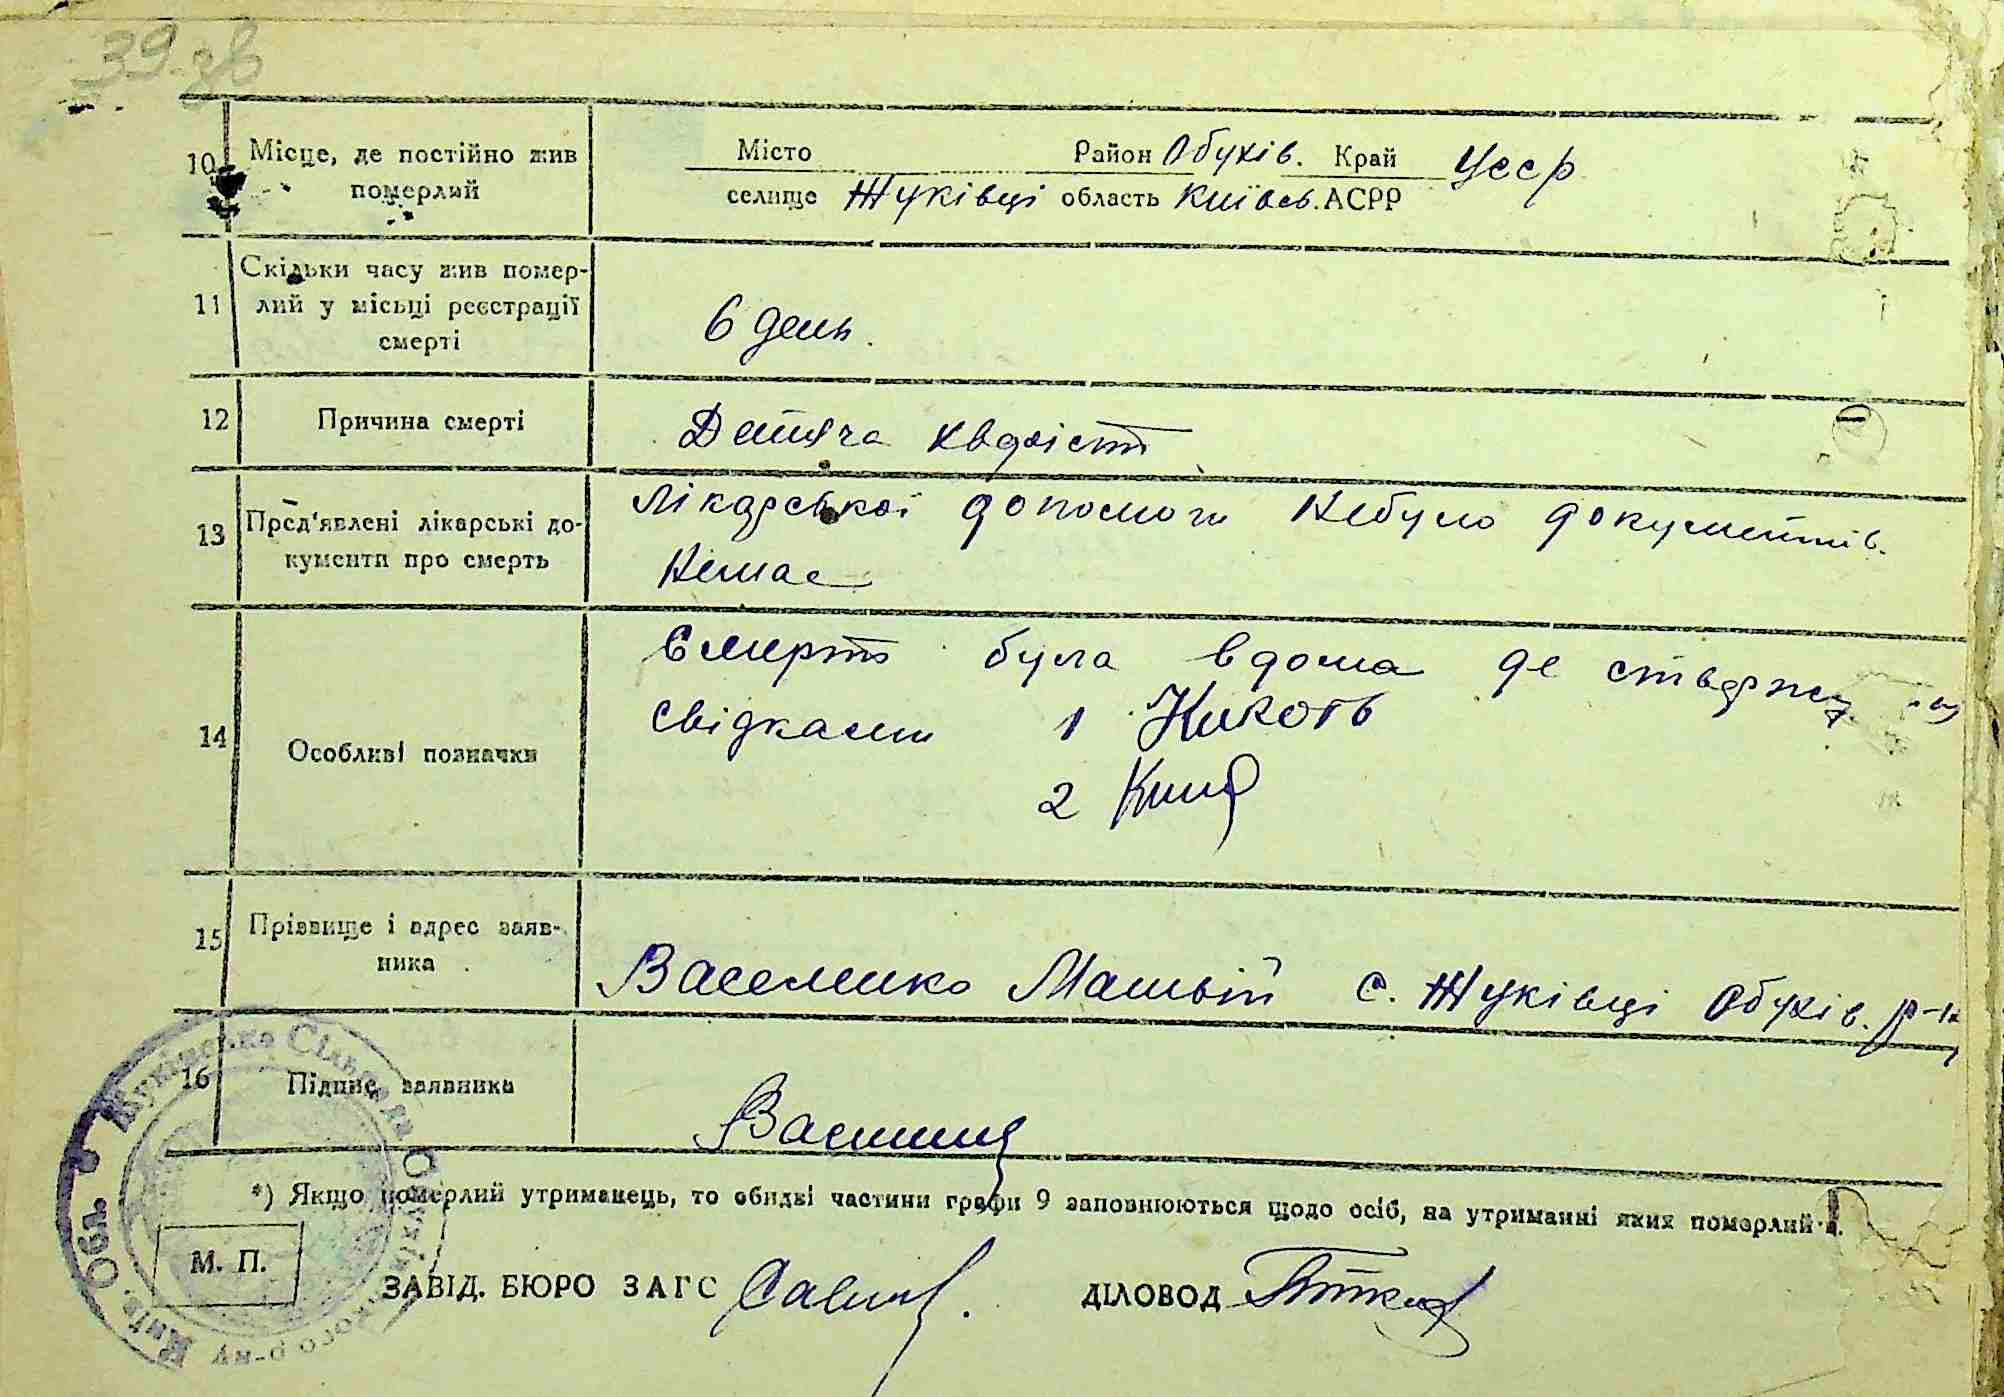 39 зв
10 Місце, де постійно жив померлий
Місто Район Обухів. Край УССР
селище Жуківці область Київсь. АСРР
11 Скільки часу жив помер-
лий у місьці реєстрації
смерті
6 день.
12 Причина смерті
Дитяча
13 Пред'явлені лікарські до-
кументи про смерть
Лікарської допомоги небуло документів.
Немає
14 Особливі позначки
Смерть була вдома де
свідками 1
2
15 Прізвище і адрес заяв-
ника
Василенко Матвій с. Жуківці Обухів. р-н
16 Підпис заявника
*) Якщо померлий утриманець, то обидві частини графи 9 заповнюються щодо осіб, на утриманні яких померлий
М. П.
ЗАВІД. БЮРО ЗАГС
ДІЛОВОД
Київ. Обл. Жуківська Сільрада Обухівського р-ну